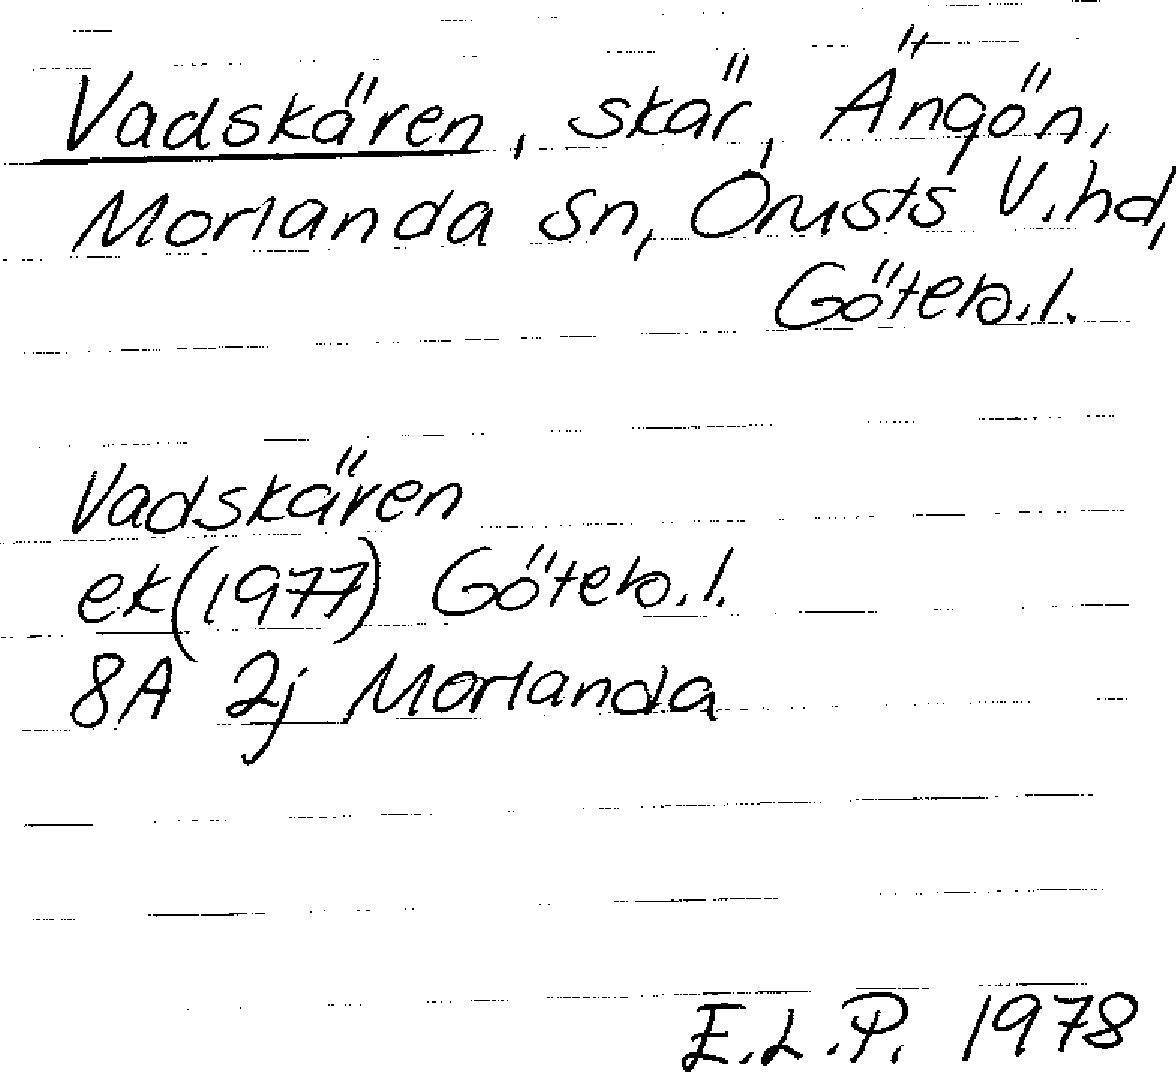 Vadskären, skär, Ängön,
Morlanda sn, Orusts V. hd,
Göteb. l.
Vadskären
ek (1977) Göteb. l.
8A 2j Morlanda
E.L.P. 1978